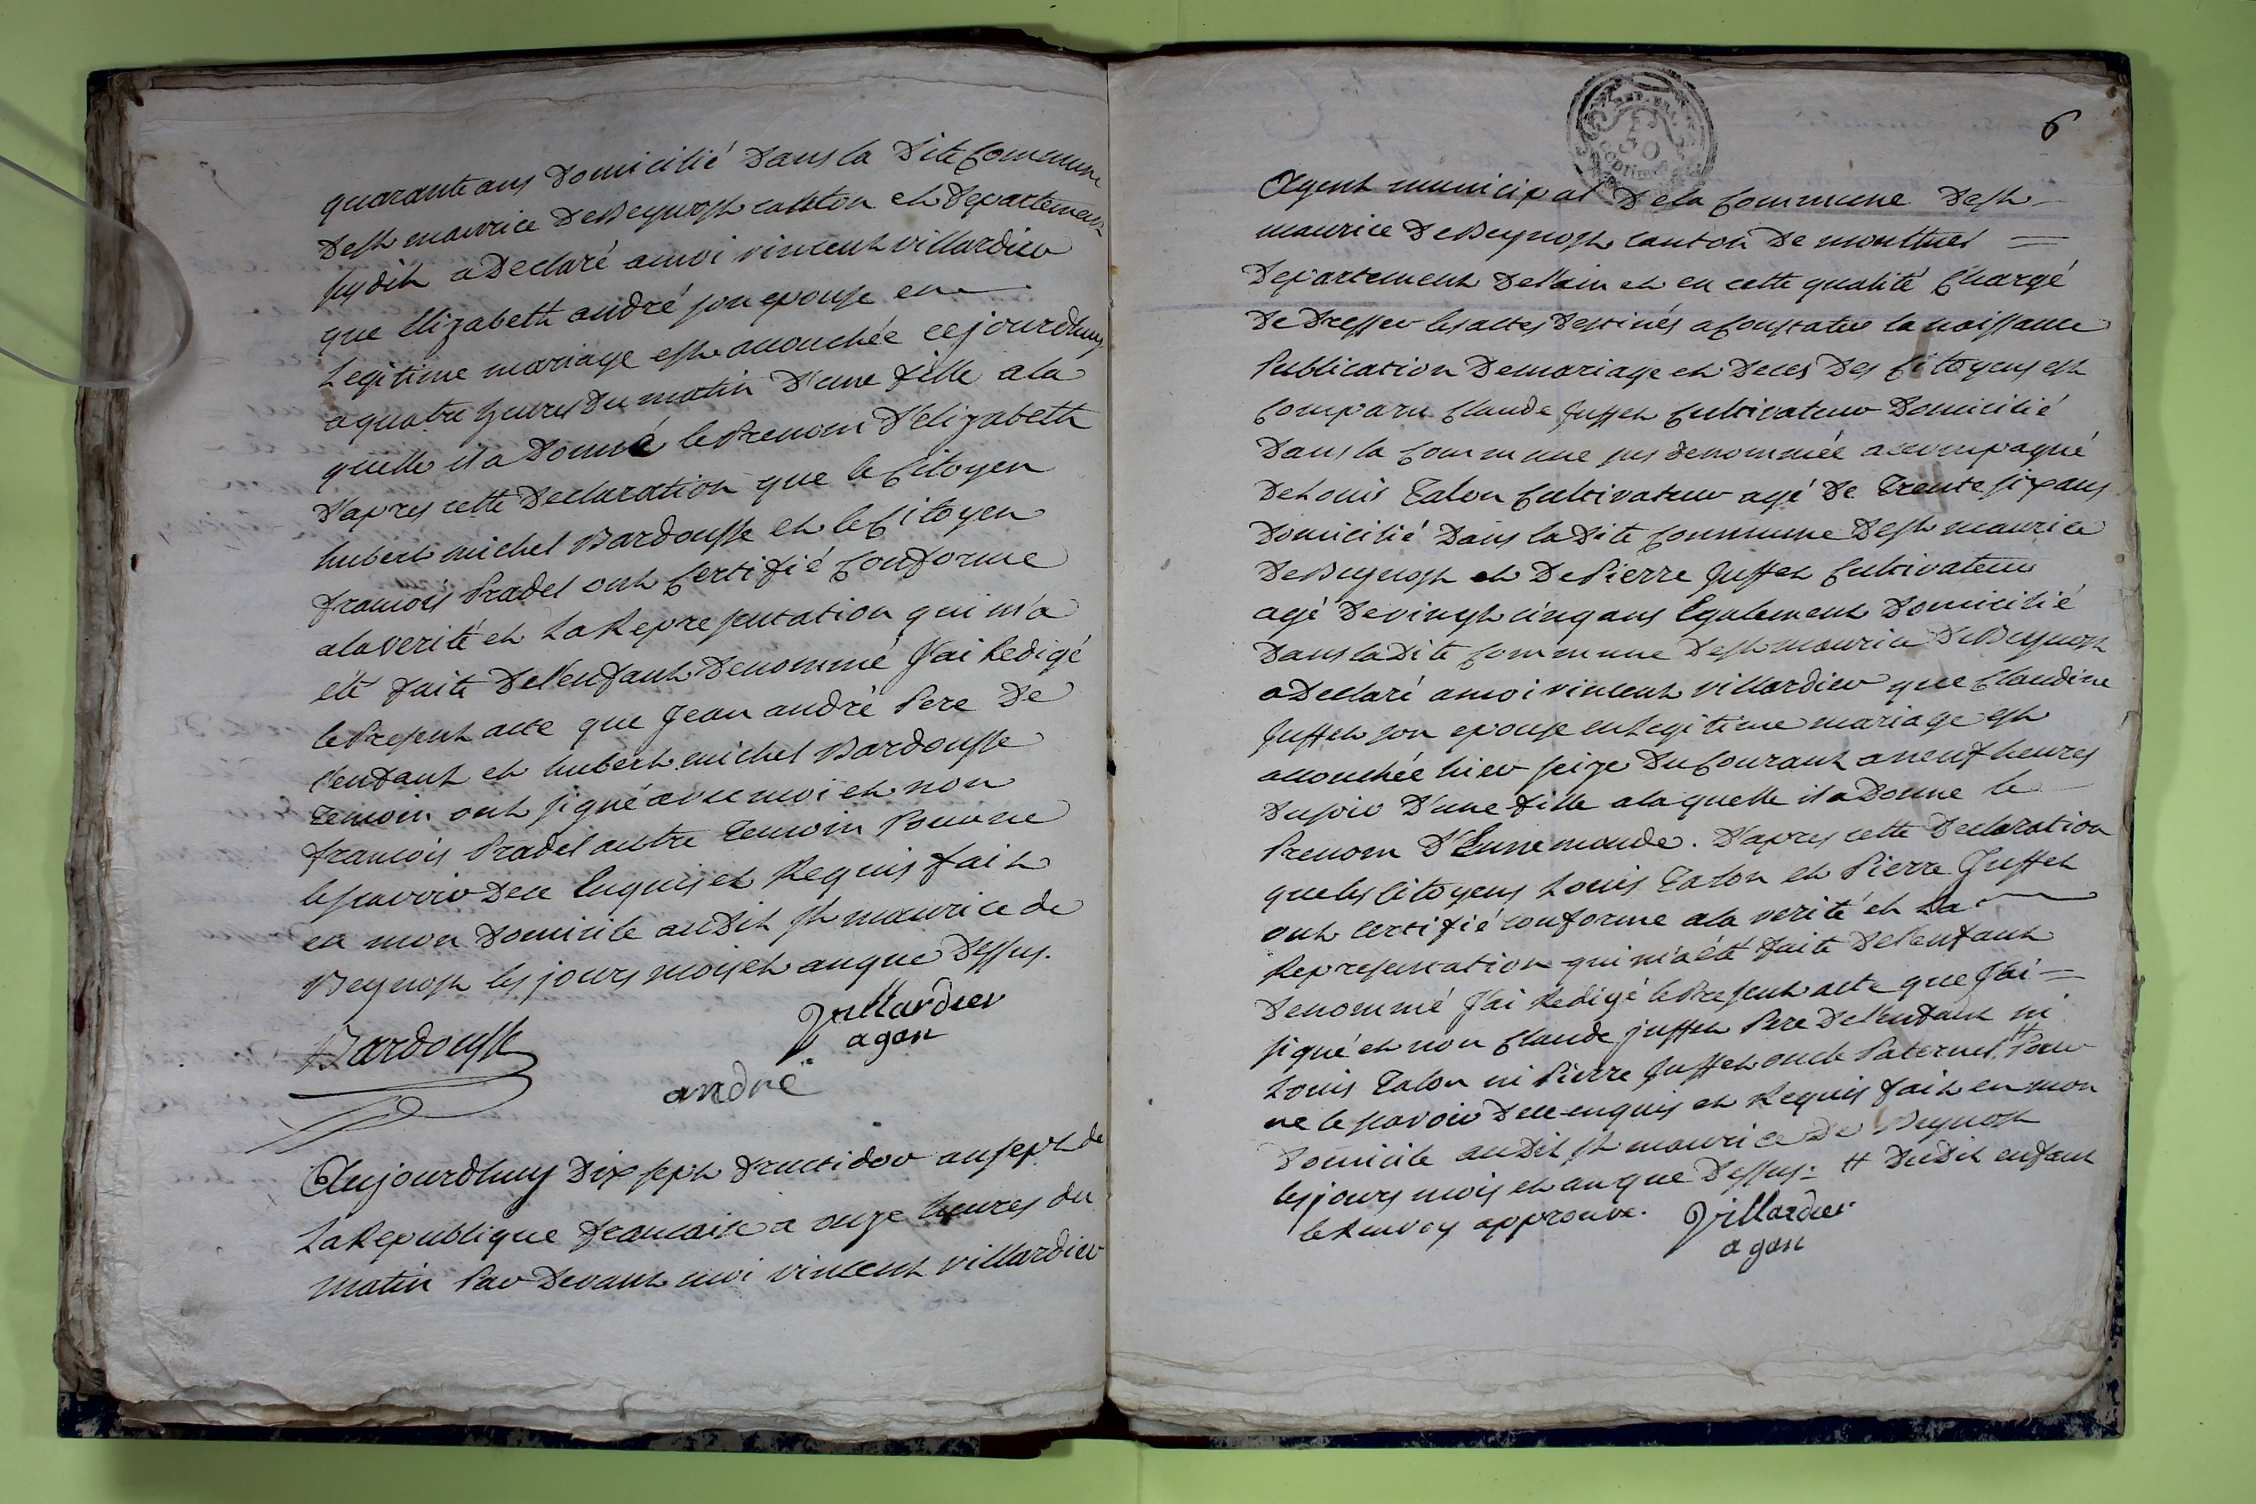 quarante ans Domicilié Dans la Dite Commune
De st maurice De Beynost canton et Departement
susdit a Declaré a moi vincent villardier
que Elizabeth andré son epouse en
Legitime mariage est accouchée cejourdhuy
a quatre heures Du matin D'une fille a la
quelle il a Donné le Prenom D'elizabeth
D'apres cette Declaration que le Citoyen
hubert michel Bardousse et le Citoyen
francois Pradel ont Certifié Conforme
a la verité et La Representation qui m'a
été faite De l'enfant Denommé J'ai Redigé
le Present acte que Jean andré Pere De
l'enfant et hubert michel Bardousse
Temoin ont signé avec moi et non
francois Pradel autre Temoin Pour ne
le scavoir De ce Enquis et Requis fait
en mon Domicile au Dit st maurice de
Beynost les jours mois et an que Dessus.
Villardier
agan
Bardousse
andré
Aujourdhuy Dix sept fructidor an sept de
La Republique francaise a onze heures du
matin Par Devant moi vincent villardier
6
REP. FRA.
50
centimes
Agent municipal De la Commune De st
maurice De Beynost canton De montluel
Departement De l'ain et en cette qualité Chargé
De Dresser les actes Destinés a Constater la naissance
Publication De mariage et Deces Des Citoyens est
Comparu Claude Juffet Cultivateur Domicilié
Dans la Commune sus denommée accompagné
De Louis Talon Cultivateur agé De Trente six ans
Domicilié Dans la Dite Commune De st maurice
De Beynost et De Pierre Juffet Cultivateur
agé De vingt cinq ans Egalement Domicilié
Dans la Dite Commune De st maurice De Beynost
a Declaré a moi vincent villardier que Claudine
Juffet son epouse en Legitime mariage est
accouchée hier seize Du Courant a neuf heures
Du soir D'une fille a la quelle il a Donne le
Prenom D'Ennemonde. D'apres cette Declaration
que les Citoyens Louis Talon et Pierre Juffet
ont certifié conforme a la verité et La
Representation qui m'a été faite De l'enfant
Denommé J'ai Redigé le Present acte que J'ai
signé et non Claude juffet Pere De l'enfant ni
Louis Talon ni Pierre Juffet oncle Paternel # Pour
ne le scavoir De ce enquis et Requis fait en mon
Domicile au Dit st maurice De Beynost
les jours mois et an que Dessus: # Du Dit enfant
le Renvoy approuvé.
Villardier
agan